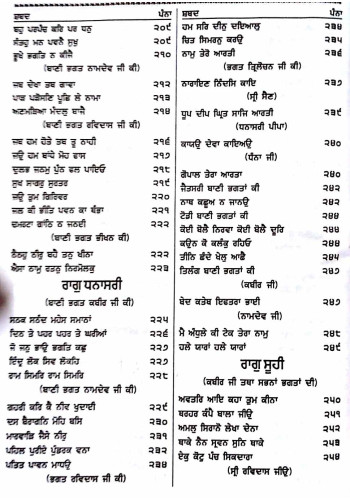 ਸ਼ਬਦ ਪੰਨਾ
ਬਹੁ ਪਰਪੰਚ ਕਰਿ ਪਰ ਧਨੁ ੨੦੯
ਸੰਤਹੁ ਮਨ ਪਵਨੈ ਸੁਖੁ ੨੦੯
ਭੂਖੇ ਭਗਤਿ ਨ ਕੀਜੈ ੨੧੦
(ਬਾਣੀ ਭਗਤ ਨਾਮਦੇਵ ਜੀ ਕੀ)
ਜਬ ਦੇਖਾ ਤਬ ਗਾਵਾ ੨੧੨
ਪਾੜ ਪੜੋਸਣਿ ਪੂਛਿ ਲੇ ਨਾਮਾ ੨੧੩
ਅਣਮੜਿਆ ਮੰਦਲੁ ਬਾਜੈ ੨੧੪
(ਬਾਣੀ ਭਗਤ ਰਵਿਦਾਸ ਜੀ ਕੀ)
ਜਬ ਹਮ ਹੋਤੇ ਤਬ ਤੂ ਨਾਹੀ ੨੧੬
ਜਉ ਹਮ ਬਾਂਧੇ ਮੋਹ ਫਾਸ ੨੧੭
ਦੁਲਭ ਜਨਮੁ ਪੁੰਨ ਫਲ ਪਾਇਓ ੨੧੮
ਸੁਖ ਸਾਗਰੁ ਸੁਰਤਰ ੨੧੯
ਜਉ ਤੁਮ ਗਿਰਿਵਰ ੨੨੦
ਜਲ ਕੀ ਭੀਤਿ ਪਵਨ ਕਾ ਥੰਭਾ ੨੨੧
ਚਮਰਟਾ ਗਾਂਠਿ ਨ ਜਨਈ ੨੨੨
(ਬਾਣੀ ਭਗਤ ਭੀਖਨ ਕੀ)
ਨੈਨਹੁ ਨੀਰੁ ਬਹੈ ਤਨੁ ਖੀਨਾ ੨੨੨
ਐਸਾ ਨਾਮੁ ਰਤਨੁ ਨਿਰਮੋਲਕੁ ੨੨੩
ਰਾਗੁ ਧਨਾਸਰੀ
(ਬਾਣੀ ਭਗਤ ਕਬੀਰ ਜੀ ਕੀ)
ਸਨਕ ਸਨੰਦ ਮਹੇਸ ਸਮਾਨਾਂ ੨੨੫
ਦਿਨ ਤੇ ਪਹਰ ਪਹਰ ਤੇ ਘਰੀਆਂ ੨੨੬
ਜੋ ਜਨੁ ਭਾਉ ਭਗਤਿ ਕਛੁ ੨੨੭
ਇੰਦ੍ਰ ਲੋਕ ਸਿਵ ਲੋਕਹਿ ੨੨੭
ਰਾਮ ਸਿਮਰਿ ਰਾਮ ਸਿਮਰਿ ੨੨੮
(ਬਾਣੀ ਭਗਤ ਨਾਮਦੇਵ ਜੀ ਕੀ)
ਗਹਰੀ ਕਰਿ ਕੈ ਨੀਵ ਖੁਦਾਈ ੨੨੯
ਦਸ ਬੈਰਾਗਨਿ ਮੋਹਿ ਬਸਿ ੨੩੦
ਮਾਰਵਾੜਿ ਜੈਸੇ ਨੀਰੁ ੨੩੧
ਪਹਿਲ ਪੁਰੀਏ ਪੁੰਡਰਕ ਵਨਾ ੨੩੨
ਪਤਿਤ ਪਾਵਨ ਮਾਧਉ ੨੩੪
(ਭਗਤ ਰਵਿਦਾਸ ਜੀ ਕੀ)
ਸ਼ਬਦ ਪੰਨਾ
ਹਮ ਸਰਿ ਦੀਨੁ ਦਇਆਲੁ ੨੩੪
ਚਿਤ ਸਿਮਰਨੁ ਕਰਉ ੨੩੫
ਨਾਮੁ ਤੇਰੋ ਆਰਤੀ ੨੩੬
(ਭਗਤ ਤ੍ਰਿਲੋਚਨ ਜੀ ਕੀ)
ਨਾਰਾਇਣ ਨਿੰਦਸਿ ਕਾਇ ੨੩੭
(ਸ੍ਰੀ ਸੈਣ)
ਧੂਪ ਦੀਪ ਘ੍ਰਿਤ ਸਾਜਿ ਆਰਤੀ ੨੩੯
(ਧਨਾਸਰੀ ਪੀਪਾ)
ਕਾਯਉ ਦੇਵਾ ਕਾਇਅਉ ੨੪੦
(ਧੰਨਾ ਜੀ)
ਗੋਪਾਲ ਤੇਰਾ ਆਰਤਾ ੨੪੦
ਜੈਤਸਰੀ ਬਾਣੀ ਭਗਤਾਂ ਕੀ ੨੪੨
ਨਾਥ ਕਛੂਅ ਨ ਜਾਨਉ ੨੪੨
ਟੋਡੀ ਬਾਣੀ ਭਗਤਾਂ ਕੀ ੨੪੪
ਕੋਈ ਬੋਲੈ ਨਿਰਵਾ ਕੋਈ ਬੋਲੈ ਦੂਰਿ ੨੪੪
ਕਉਨ ਕੋ ਕਲੰਕੁ ਰਹਿਓ ੨੪੪
ਤੀਨਿ ਛੰਦੇ ਖੇਲੁ ਆਛੈ ੨੪੫
ਤਿਲੰਗ ਬਾਣੀ ਭਗਤਾਂ ਕੀ ੨੪੭
(ਕਬੀਰ ਜੀ)
ਬੇਦ ਕਤੇਬ ਇਫਤਰਾ ਭਾਈ ੨੪੭
(ਨਾਮਦੇਵ ਜੀ)
ਮੈ ਅੰਧੁਲੇ ਕੀ ਟੇਕ ਤੇਰਾ ਨਾਮੁ ੨੪੮
ਹਲੇ ਯਾਰਾਂ ਹਲੇ ਯਾਰਾਂ ੨੪੯
ਰਾਗੁ ਸੂਹੀ
(ਕਬੀਰ ਜੀ ਤਥਾ ਸਭਨਾਂ ਭਗਤਾਂ ਦੀ)
ਅਵਤਰਿ ਆਇ ਕਹਾ ਤੁਮ ਕੀਨਾ ੨੫੦
ਥਰਹਰ ਕੰਪੈ ਬਾਲਾ ਜੀਉ ੨੫੧
ਅਮਲੁ ਸਿਰਾਨੋ ਲੇਖਾ ਦੇਨਾ ੨੫੨
ਥਾਕੇ ਨੈਨ ਸ੍ਰਵਨ ਸੁਨਿ ਥਾਕੇ ੨੫੩
ਏਕੁ ਕੋਟੁ ਪੰਚ ਸਿਕਦਾਰਾ ੨੫੪
(ਸ੍ਰੀ ਰਵਿਦਾਸ ਜੀਉ)